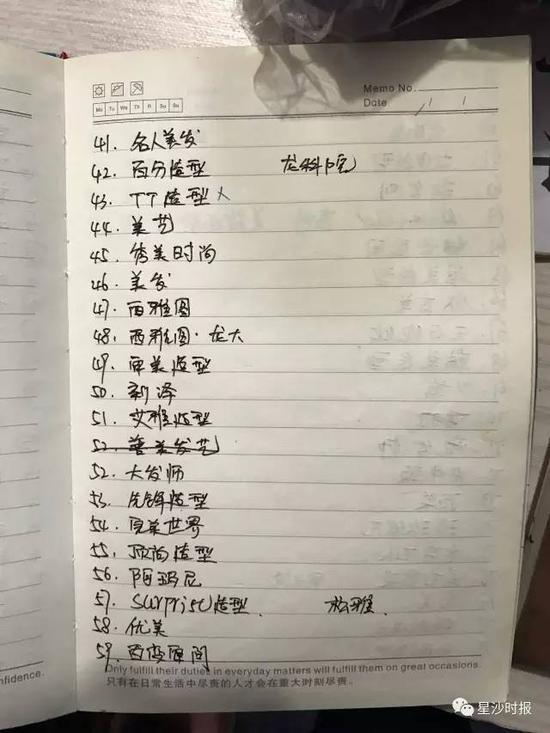 Memo No.
Mo Tu We Th Fr Sa Su
Date / /
41. 名人美发
42. 百分造型 龙科院
43. TT造型 ×
44. 美艺
45. 秀美时尚
46. 美发
47. 西雅图
48. 西雅图·龙大
49. 审美造型
50. 新泽
51. 艾雅造型
52. 美发艺
52. 大发师
53. 先锋造型
54. 完美世界
55. 顶尚造型
56. 阿玛尼
57. Surprise造型. 松雅.
58. 优美
59. 百变瞬间
nfidence.
Only fulfill their duties in everyday matters will fulfill them on great occasions.
只有在日常生活中尽责的人才会在重大时刻尽责。
星沙时报